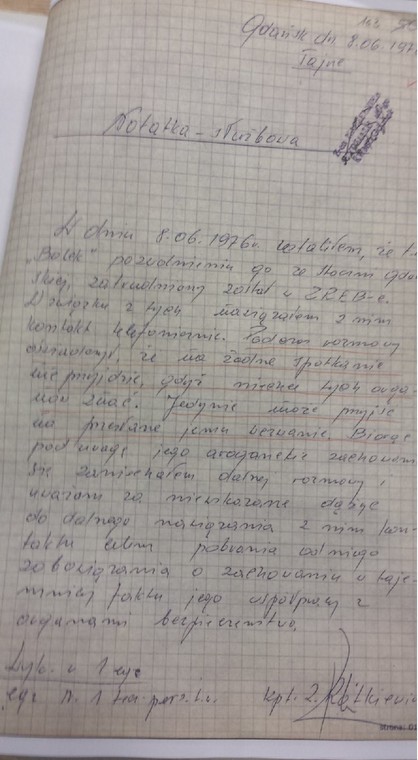 Gdańsk dn 8.06.197
Tajne
Notatka – służbowa
W dniu 8.06.1976r. ustaliłem, że t.
"Bolek" po zwolnieniu go ze Stoczni Gdań
skiej, zatrudniony został w ZREB-e.
W związku z tym nawiązałem z nim
kontakt telefonicznie. Podczas rozmowy
oświadczył, że na żadne spotkanie
nie przyjdzie, gdyż nie chce tych orga-
nów znać. Jedynie może przyjść
na przesłane jemu wezwanie. Biorąc
pod uwagę jego aroganckie zachowani
się zaniechałem dalszej rozmowy i
uważam za niewskazane dążyć
do dalszego nawiązania z nim kon-
taktu celem pobrania od niego
zobowiązania o zachowaniu w taje-
mnicy faktu jego współpracy z
organami bezpieczeństwa.
Wyk. w 1 egz
egz N. 1 t-ka pers. t.w.
kpt. Z. Ratkiewi